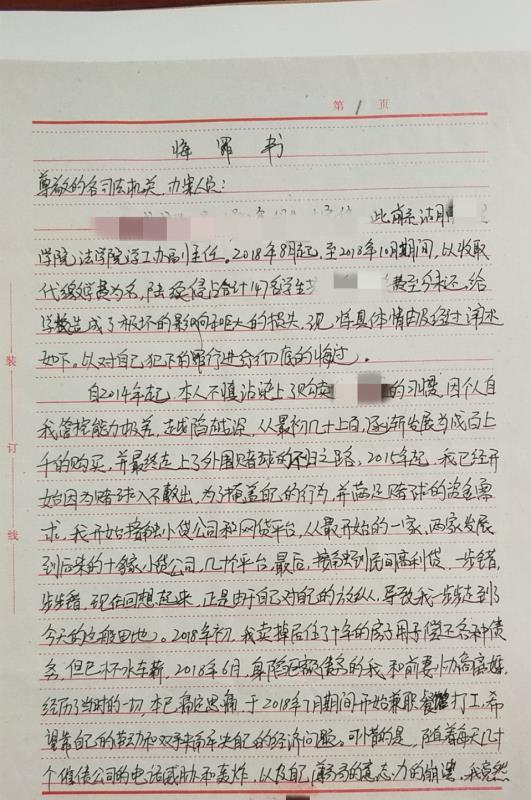 第 1 页
悔罪书
尊敬的各司法机关 办案人员：
此前系
学院法学院学工办副主任。2018年8月起，至2018年10月期间，以收取
代缴学费为名，陆续侵占合计147名学生 费至今未还，给
学校造成了极坏的影响和巨大的损失，现将具体情由及经过详述
如下。以对自己犯下的罪行进行彻底的悔过。
自2014年起，本人不慎沾染上了购买 的习惯，因个人自
我管控能力极差，越陷越深，从最初几十上百，逐渐发展为成百上
千的购买，并最终走上了外围赌球的不归之路，2015年起，我已经开
始因为赌球入不敷出，为了掩盖自己的行为，并满足赌球的资金需
求，我开始接触小贷公司和网贷平台，从最开始的一家、两家发展
到后来的十余家小贷公司，几十个平台，最后，接触到民间高利贷，一步错，
步步错，现在回想起来，正是由于自己对自己的放纵，导致我一步步走到了
今天的这般田地。2018年初，我卖掉居住了十年的房子用于偿还各种债
务，但已杯水车薪，2018年6月，身陷巨额债务的我，和前妻协商离婚，
经历了当时的一切，本已痛定思痛，于2018年7月期间开始兼职 打工，希
望靠自己的劳动和双手来解决自己的经济问题。可惜的是，随着每天几十
个催债公司的电话威胁和轰炸，以及自己 的意志力的崩溃，我竟然
装
订
线